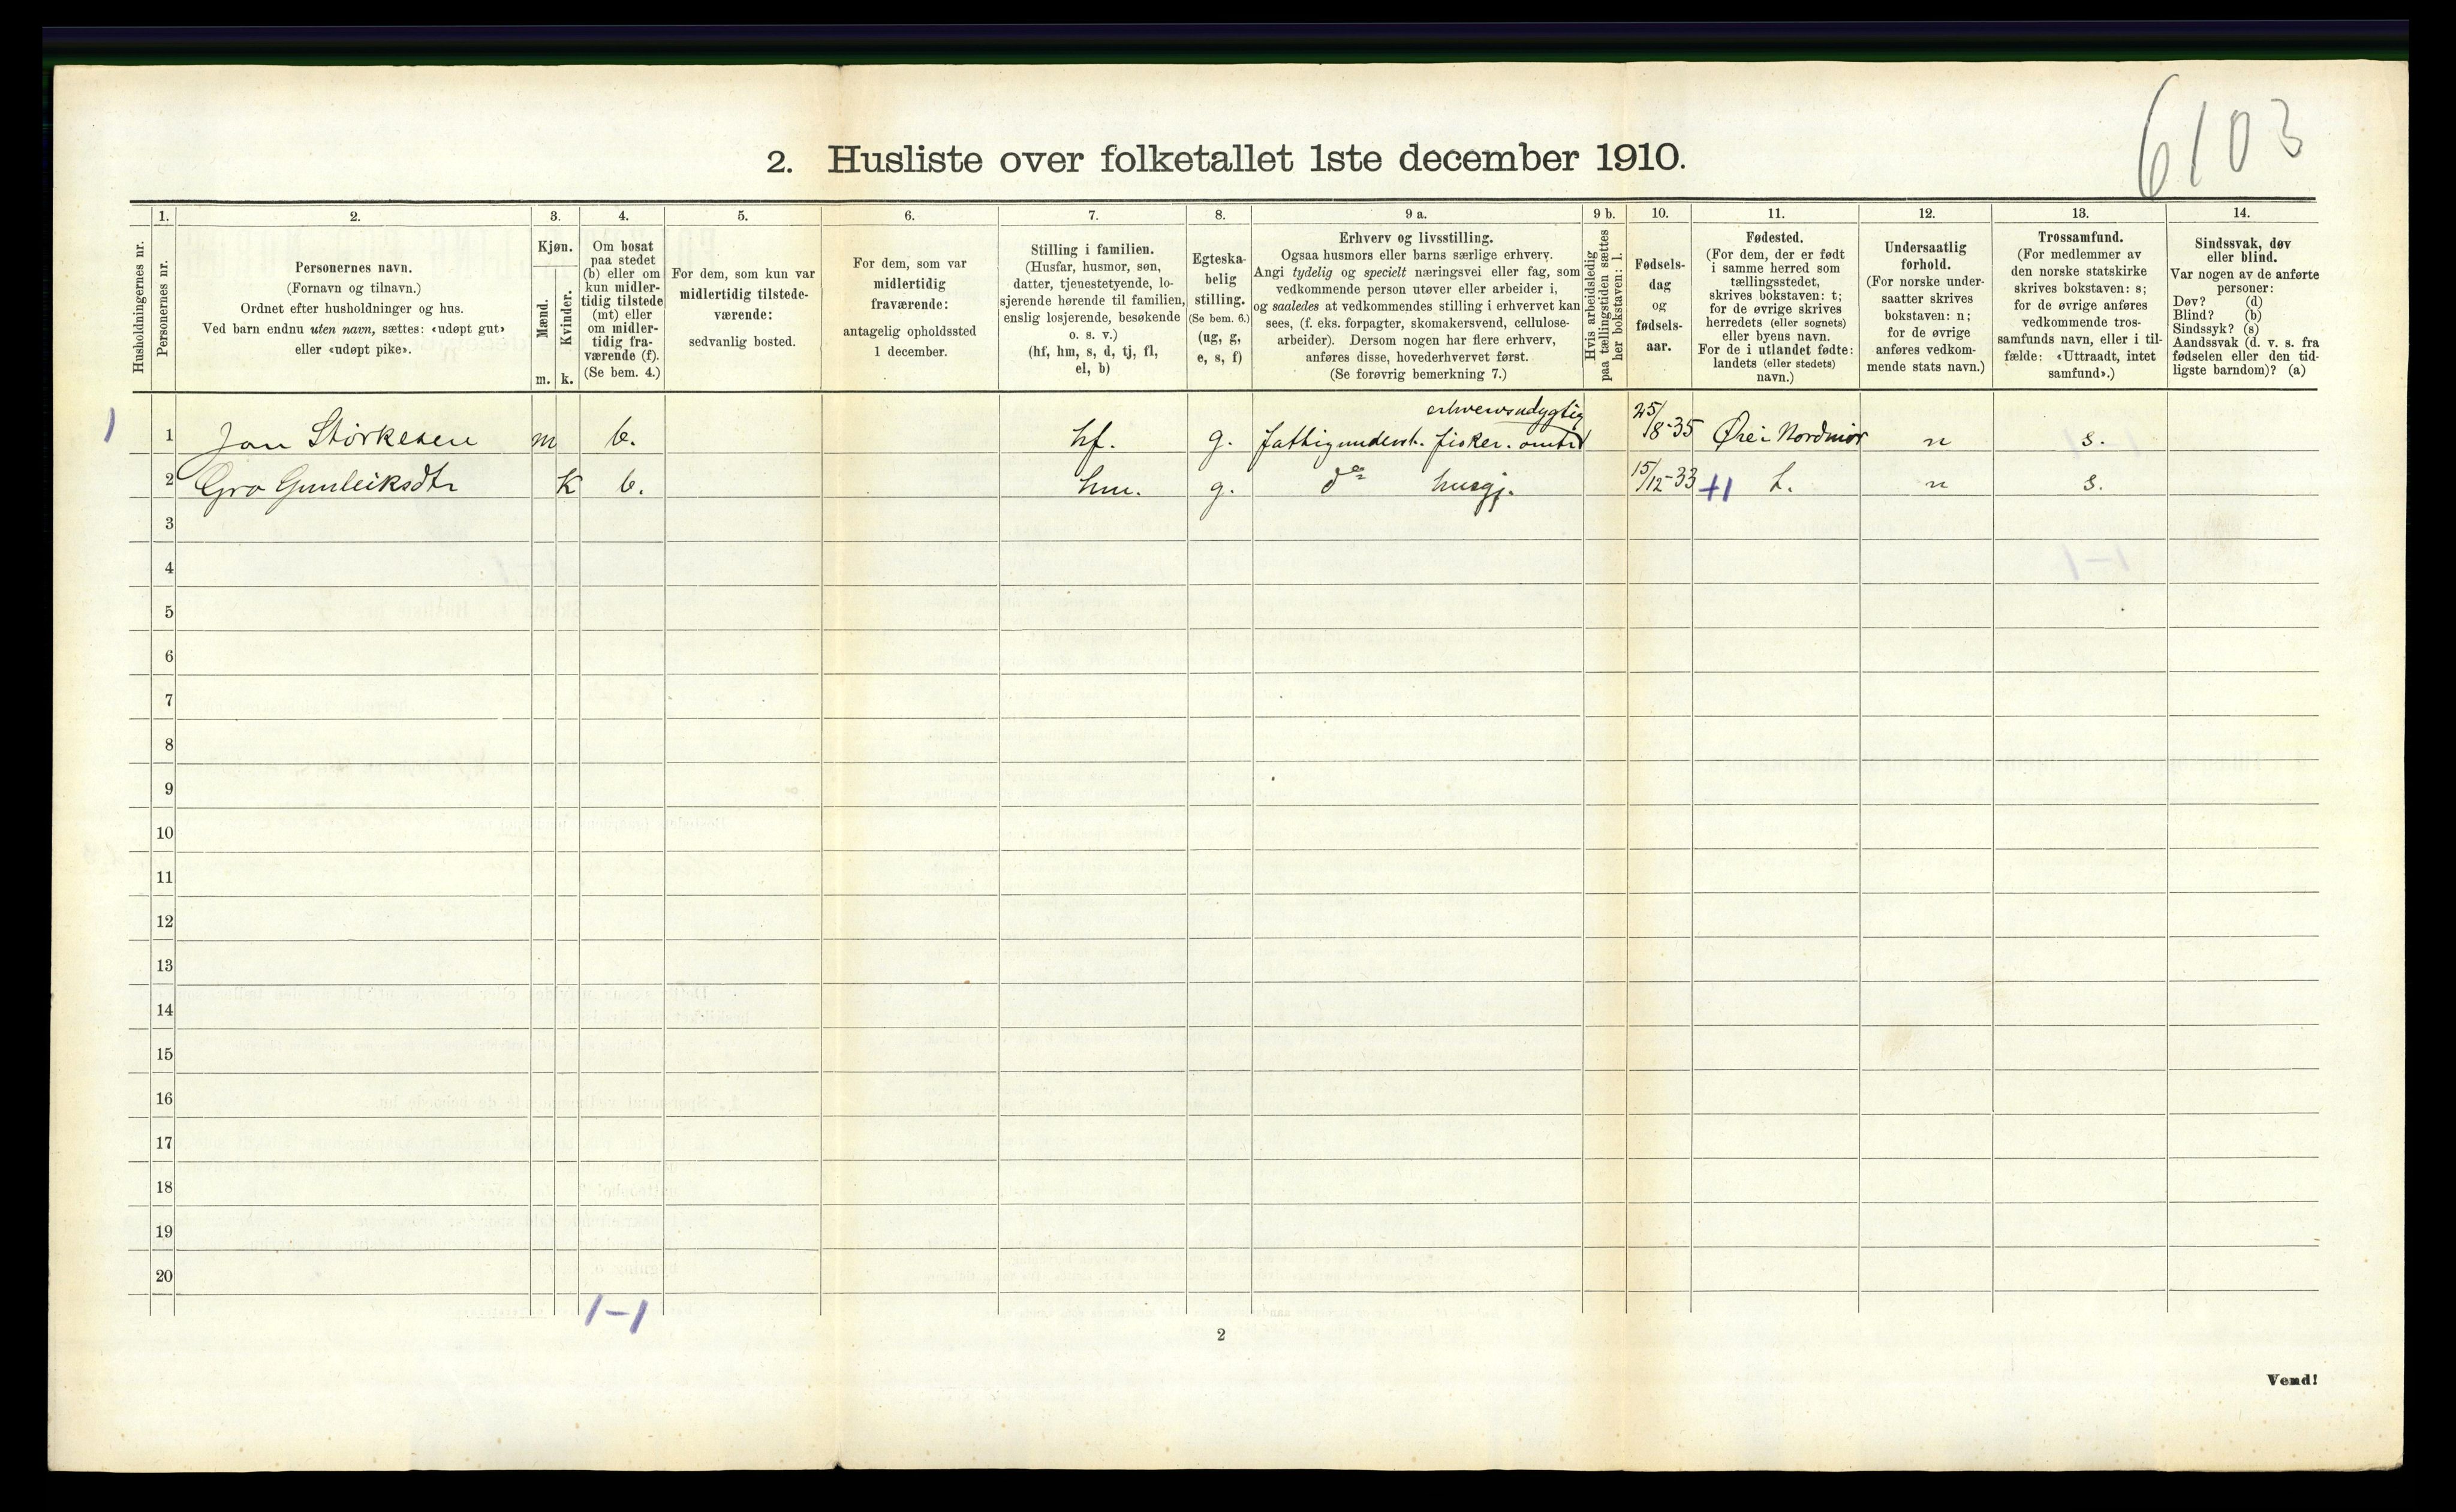 6103
2. Husliste over folketallet 1ste december 1910.
Husholdningernes nr.
1.
Personernes nr.
2.
Personernes navn.
(Fornavn og tilnavn.)
Ordnet efter husholdninger og hus.
Ved barn endnu uten navn, sættes: «udøpt gut»
eller «udøpt pike».
3.
Kjøn.
Mænd.
Kvinder.
m. k.
4.
Om bosat
paa stedet
(b) eller om
kun midler-
tidig tilstede
(mt) eller
om midler-
tidig fra-
værende (f).
(Se bem. 4.)
5.
For dem, som kun var
midlertidig tilstede-
værende:
sedvanlig bosted.
6.
For dem, som var
midlertidig
fraværende:
antagelig opholdssted
1 december.
7.
Stilling i familien.
(Husfar, husmor, søn,
datter, tjenestetyende, lo-
sjerende hørende til familien,
enslig losjerende, besøkende
o. s. v.)
(hf, hm, s, d, tj, fl,
el, b)
8.
Egteska-
belig
stilling.
(Se bem. 6.)
(ug, g,
e, s, f)
9 a.
Erhverv og livsstilling.
Ogsaa husmors eller barns særlige erhverv.
Angi tydelig og specielt næringsvei eller fag, som
vedkommende person utøver eller arbeider i,
og saaledes at vedkommendes stilling i erhvervet kan
sees, (f. eks. forpagter, skomakersvend, cellulose-
arbeider). Dersom nogen har flere erhverv,
anføres disse, hovederhvervet først.
(Se forøvrig bemerkning 7.)
9 b.
Hvis arbeidsledig
paa tællingstiden sættes
her bokstaven: l.
10.
Fødsels-
dag
og
fødsels-
aar.
11.
Fødested.
(For dem, der er født
i samme herred som
tællingsstedet,
skrives bokstaven: t;
for de øvrige skrives
herredets (eller sognets)
eller byens navn.
For de i utlandet fødte:
landets (eller stedets)
navn.)
12.
Undersaatlig
forhold.
(For norske under-
saatter skrives
bokstaven: n;
for de øvrige
anføres vedkom-
mende stats navn.)
13.
Trossamfund.
(For medlemmer av
den norske statskirke
skrives bokstaven: s;
for de øvrige anføres
vedkommende tros-
samfunds navn, eller i til-
fælde: «Uttraadt, intet
samfund».)
14.
Sindssvak, døv
eller blind.
Var nogen av de anførte
personer:
Døv? (d)
Blind? (b)
Sindssyk? (s)
Aandssvak (d. v. s. fra
fødselen eller den tid-
ligste barndom)? (a)
erhvervsudygtig
1 1 Jon Størkesen m b. hf. g. fattigunderst. fisker. 25/8-35 Øre i Nordmør n s.
2 Gro Gunleiksdtr K b. hm. g. do husgj. 15/12-33 +1 t. n s.
3
4
5
6
7
8
9
10
11
12
13
14
15
16
17
18
19
20
1-1
2
Vend!